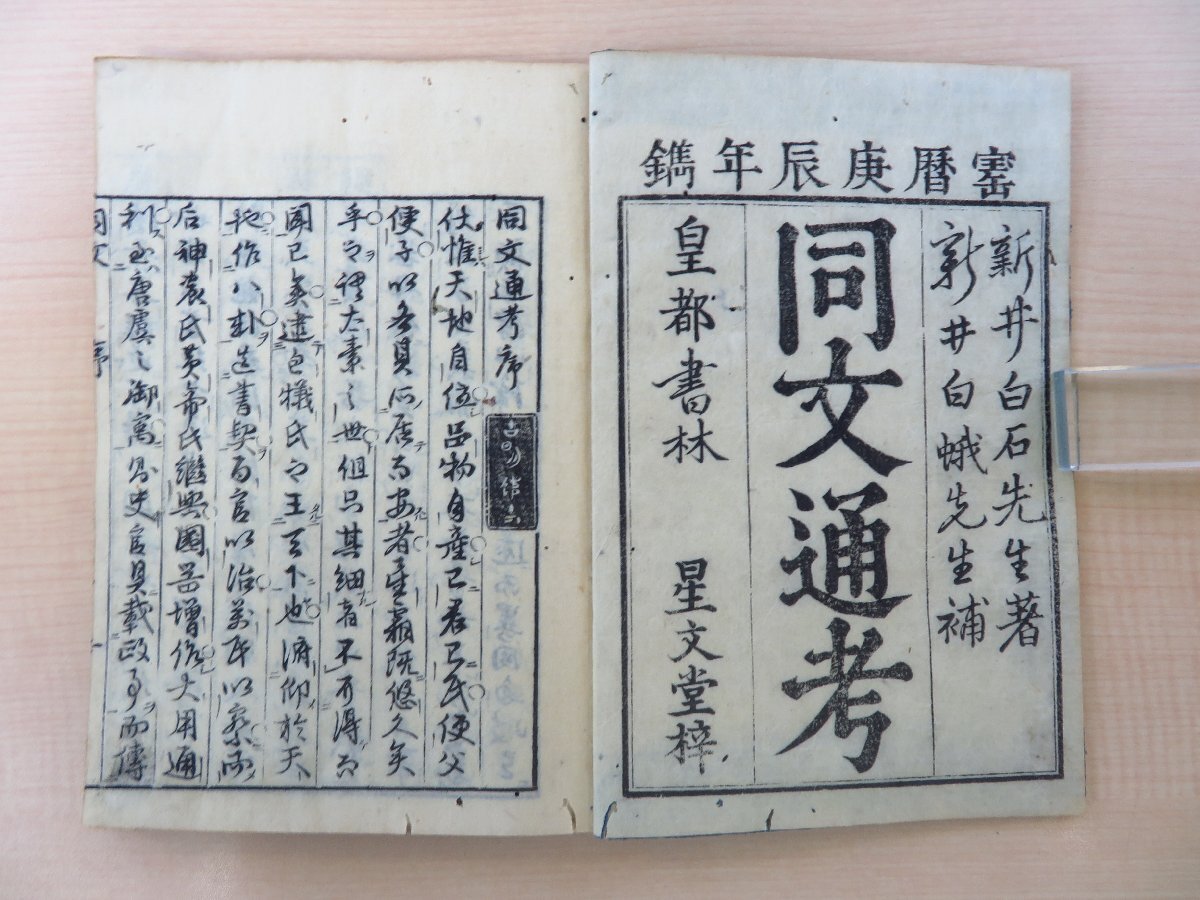 寚暦庚辰年鐫
新井白石先生著
新井白蛾先生補
同文通考
皇都書林 星文堂梓
同文通考序
伏惟天地自位品物自産已君已民便父
便子以各具所居而安者星霜既悠久矣
乎太素之世但只其細者不可得而
聞已矣逮包犧氏之王天下也俯仰於天
地作八卦造書契百官以治萬民以察而
后神農氏黄帝氏継興國器増作大用通
利至唐虞之御寓則史官具載政事而傳
同文 序 一